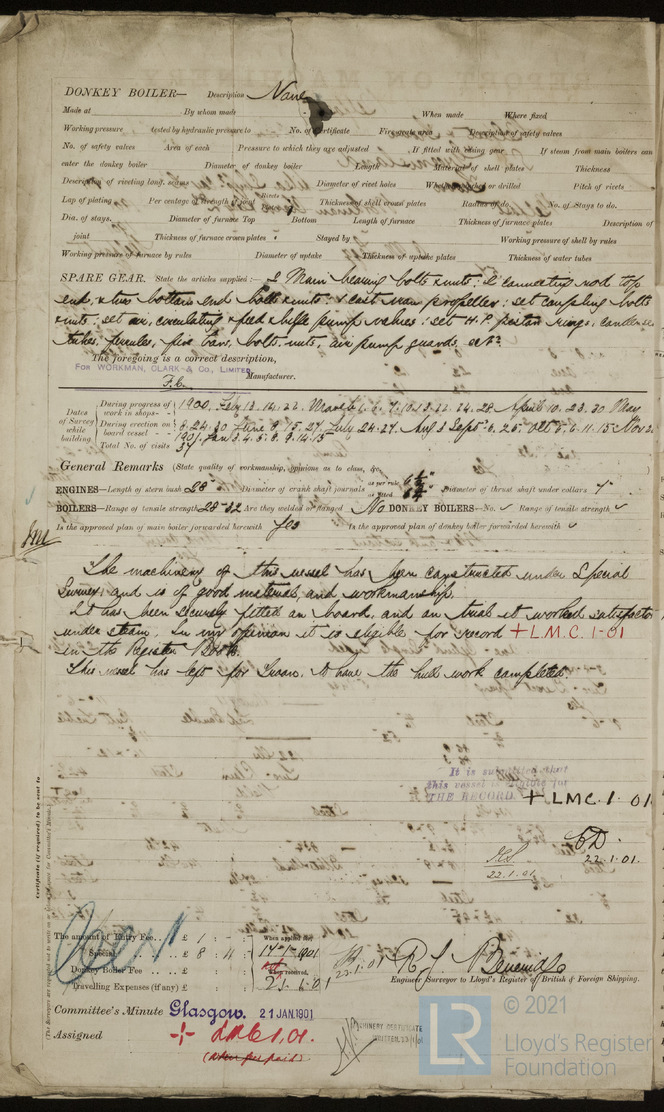 DONKEY BOILER— Description None
Made at By whom made When made Where fixed
Working pressure tested by hydraulic pressure to No. of Certificate Fire grate area Description of safety valves
No. of safety valves Area of each Pressure to which they are adjusted If fitted with easing gear If steam from main boilers can
enter the donkey boiler Diameter of donkey boiler Length Material of shell plates Thickness
Description of riveting long. seams Diameter of rivet holes Whether punched or drilled Pitch of rivets
Lap of plating Per centage of strength of joint Rivets Thickness of shell crown plates Radius of do. No. of Stays to do.
Dia. of stays. Diameter of furnace Top Bottom Length of furnace Thickness of furnace plates Description of
joint Thickness of furnace crown plates Stayed by Working pressure of shell by rules
Working pressure of furnace by rules Diameter of uptake Thickness of uptake plates Thickness of water tubes
SPARE GEAR. State the articles supplied:— 2 Main bearing bolts & nuts: 2 connecting rod top
end, & two bottom end bolts & nuts: 1 cast iron propeller: set coupling bolts
& nuts: set air, circulating & feed & bilge pump valves: set H.P. piston rings, condenser
tubes, ferrules, fire bars, bolts, nuts, air pump guards, etc.
The foregoing is a correct description,
FOR WORKMAN, CLARK & Co., LIMITED Manufacturer.
Dates of Survey while building
During progress of work in shops - - 1900. Feb 13. 14. 22. March 1. 6. 7. 10. 13. 22. 24. 28 April 10. 23. 30 May
During erection on board vessel - - 8. 24. 30 June 8. 15. 27. July 24. 27. Aug 3 Sept 6. 25. Oct 5. 6. 11. 15 Nov 2.
Total No. of visits 37 1901. Jan 3. 4. 5. 8. 9. 14. 15
General Remarks (State quality of workmanship, opinions as to class, &c.
ENGINES—Length of stern bush 28" Diameter of crank shaft journals as per rule as fitted Diameter of thrust shaft under collars 7"
BOILERS—Range of tensile strength 28-32 Are they welded or flanged No DONKEY BOILERS—No. ✓ Range of tensile strength ✓
Is the approved plan of main boiler forwarded herewith Yes Is the approved plan of donkey boiler forwarded herewith ✓
The machinery of this vessel has been constructed under Special
Survey, and is of good material, and workmanship.
It has been securely fitted on board, and on trial it worked satisfactor
under steam. In my opinion it is eligible for record + L.M.C. 1-01
in the Register Book.
This vessel has left for Troon, to have the hull work completed.
It is submitted that
this vessel is eligible for
THE RECORD. + LMC. 1. 01.
22.1.01.
22.1.01
Certificate (if required) to be sent to
The amount of Entry Fee.. £ 1 : - : - When applied for,
Special .. £ 8 : 4 : 17-1-1901
Donkey Boiler Fee .. £ : : When received,
Travelling Expenses (if any) £ : : 01
22.1.01
Engineer Surveyor to Lloyd's Register of British & Foreign Shipping.
Committee's Minute Glasgow. 21 JAN. 1901
Assigned + LMC 1.01.
(when fee paid).
MACHINERY CERTIFICATE
WRITTEN
LR
© 2021
Lloyd's Register
Foundation